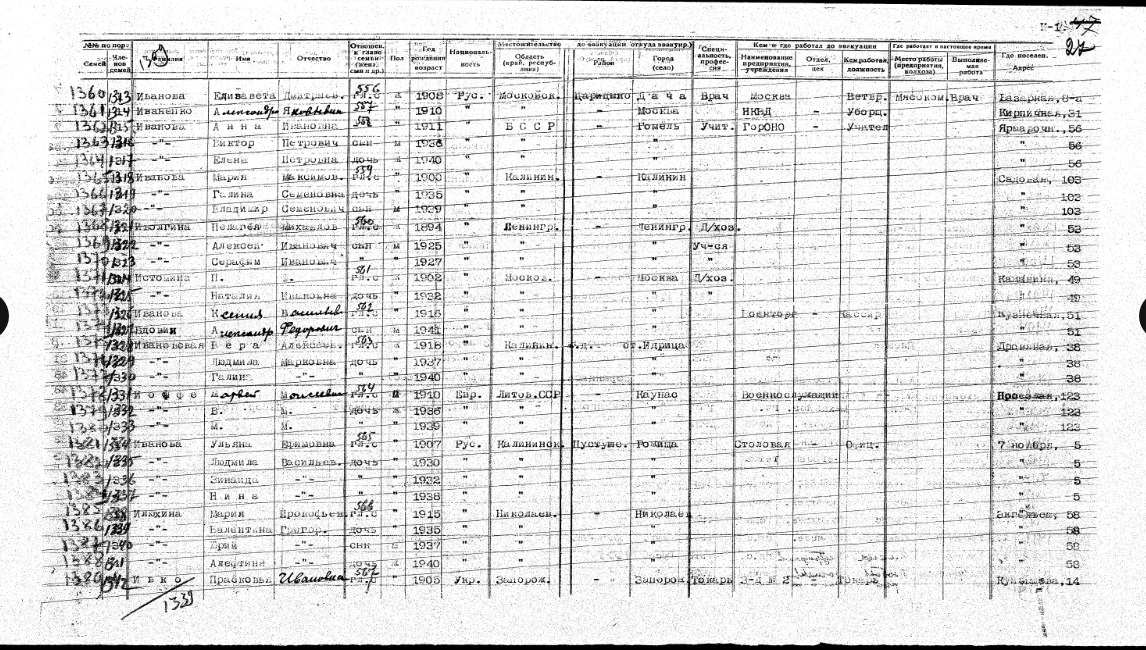 27
№№ по пор. Фамилия Имя Отчество Отношен. к главе семьи Пол Год рождения возраст Национальность Местожительство до эвакуации (откуда эвакуир.) Специальность, профессия Кем и где работал до эвакуации Где работает в настоящее время Где поселен.
Семей Членов семей Область (край, республика) Район Город (село) Наименование предприятия, учреждения Отдел, цех Кем работал, должность Место работы (предприятия, колхоза) Выполняемая работа Адрес
1360 1313 Иванова Елизавета Дмитриев. 556 гл.с ж 1908 Рус. Московск. Царицыно Дача Врач Москва - Ветвр. Мясоком. Врач Базарная, 8-а
1361 1314 Иваненко Александр Яковлевич 557 1910 " " - Москва НКВД - Уборщ. Кирпичная, 31
1362 1315 Иванова Анна Ивановна 558 1911 " БССР - Гомель Учит. ГорОНО - Учител Ярмарочн., 56
1363 1316 -"- Виктор Петрович сын 1936 " " - " " 56
1364 1317 -"- Елена Петровна дочь 1940 " " - " " 56
1365 1318 Иванова Мария Максимов. 559 гл.с 1900 " Калинин. - Калинин Садовая, 103
1366 1319 -"- Галина Семеновна дочь 1935 " " - " " 103
1367 1320 -"- Владимир Семенович сын м 1939 " " - " " 103
1368 1321 Иволгина Пелагея Михайлов 560 гл.с ж 1894 " Ленингр. - Ленингр. Д/хоз. " 53
1369 1322 -"- Алексей Иванович сын м 1925 " " - " Уч-ся " 53
1370 1323 -"- Серафим Иванович " " 1927 " " - " " " 53
1371 1324 Истомина П. - 561 гл.с ж 1902 " Москов. - Москва Д/хоз. Калинина, 49
1325 -"- Наталия Ивановна дочь " 1932 " " - " " " 49
1326 Иванова Ксения Васильев. 562 1916 " " - " Военторг - Кассир Кузнечная, 51
1327 Вдовин Александр Федорович сын м 1941 " " - " " 51
1328 Вера Алексеев. 563 1918 " Калинин. ж.д. ст.Идрица 38
1329 -"- Людмила Марковна дочь " 1937 " " - " " 38
1330 -"- Галина -"- " " 1940 " " - " " 38
1378 1331 Иоффе Моисеевич 564 гл.с м 1910 Евр. Литов.ССР - Каунас Военнослужащий 123
1379 1332 -"- В. М. дочь ж 1936 " " - " " 123
1333 -"- М. М. " " 1939 " " - " " 123
1381 1334 Иванова Ульяна Ефимовна 565 гл.с " 1907 Рус. Калининск. Пустуше. Столовая - Офиц. 7 ноября, 5
1335 -"- Людмила Васильев. дочь " 1930 " " - " " 5
1336 -"- Зинаида -"- " " 1932 " " - " " 5
1337 -"- Нина -"- " " 1938 " " - " " 5
1385 1338 Илюхина Мария Прокофьев. 566 гл.с " 1915 " Николаев. - Николаев Энгельса, 58
1386 1339 -"- Валентина Григор. дочь " 1935 " " - " " 58
1340 -"- Юрий -"- сын м 1937 " " - " " 58
1388 1341 -"- Алефтина -"- дочь ж 1940 " " - " " 58
1389 1342 Ивко Прасковья Ивановна 567 гл.с " 1905 Укр. Запорож. - Запорож Токарь З-д № 2 - Токарь Куйбышева, 14
1339